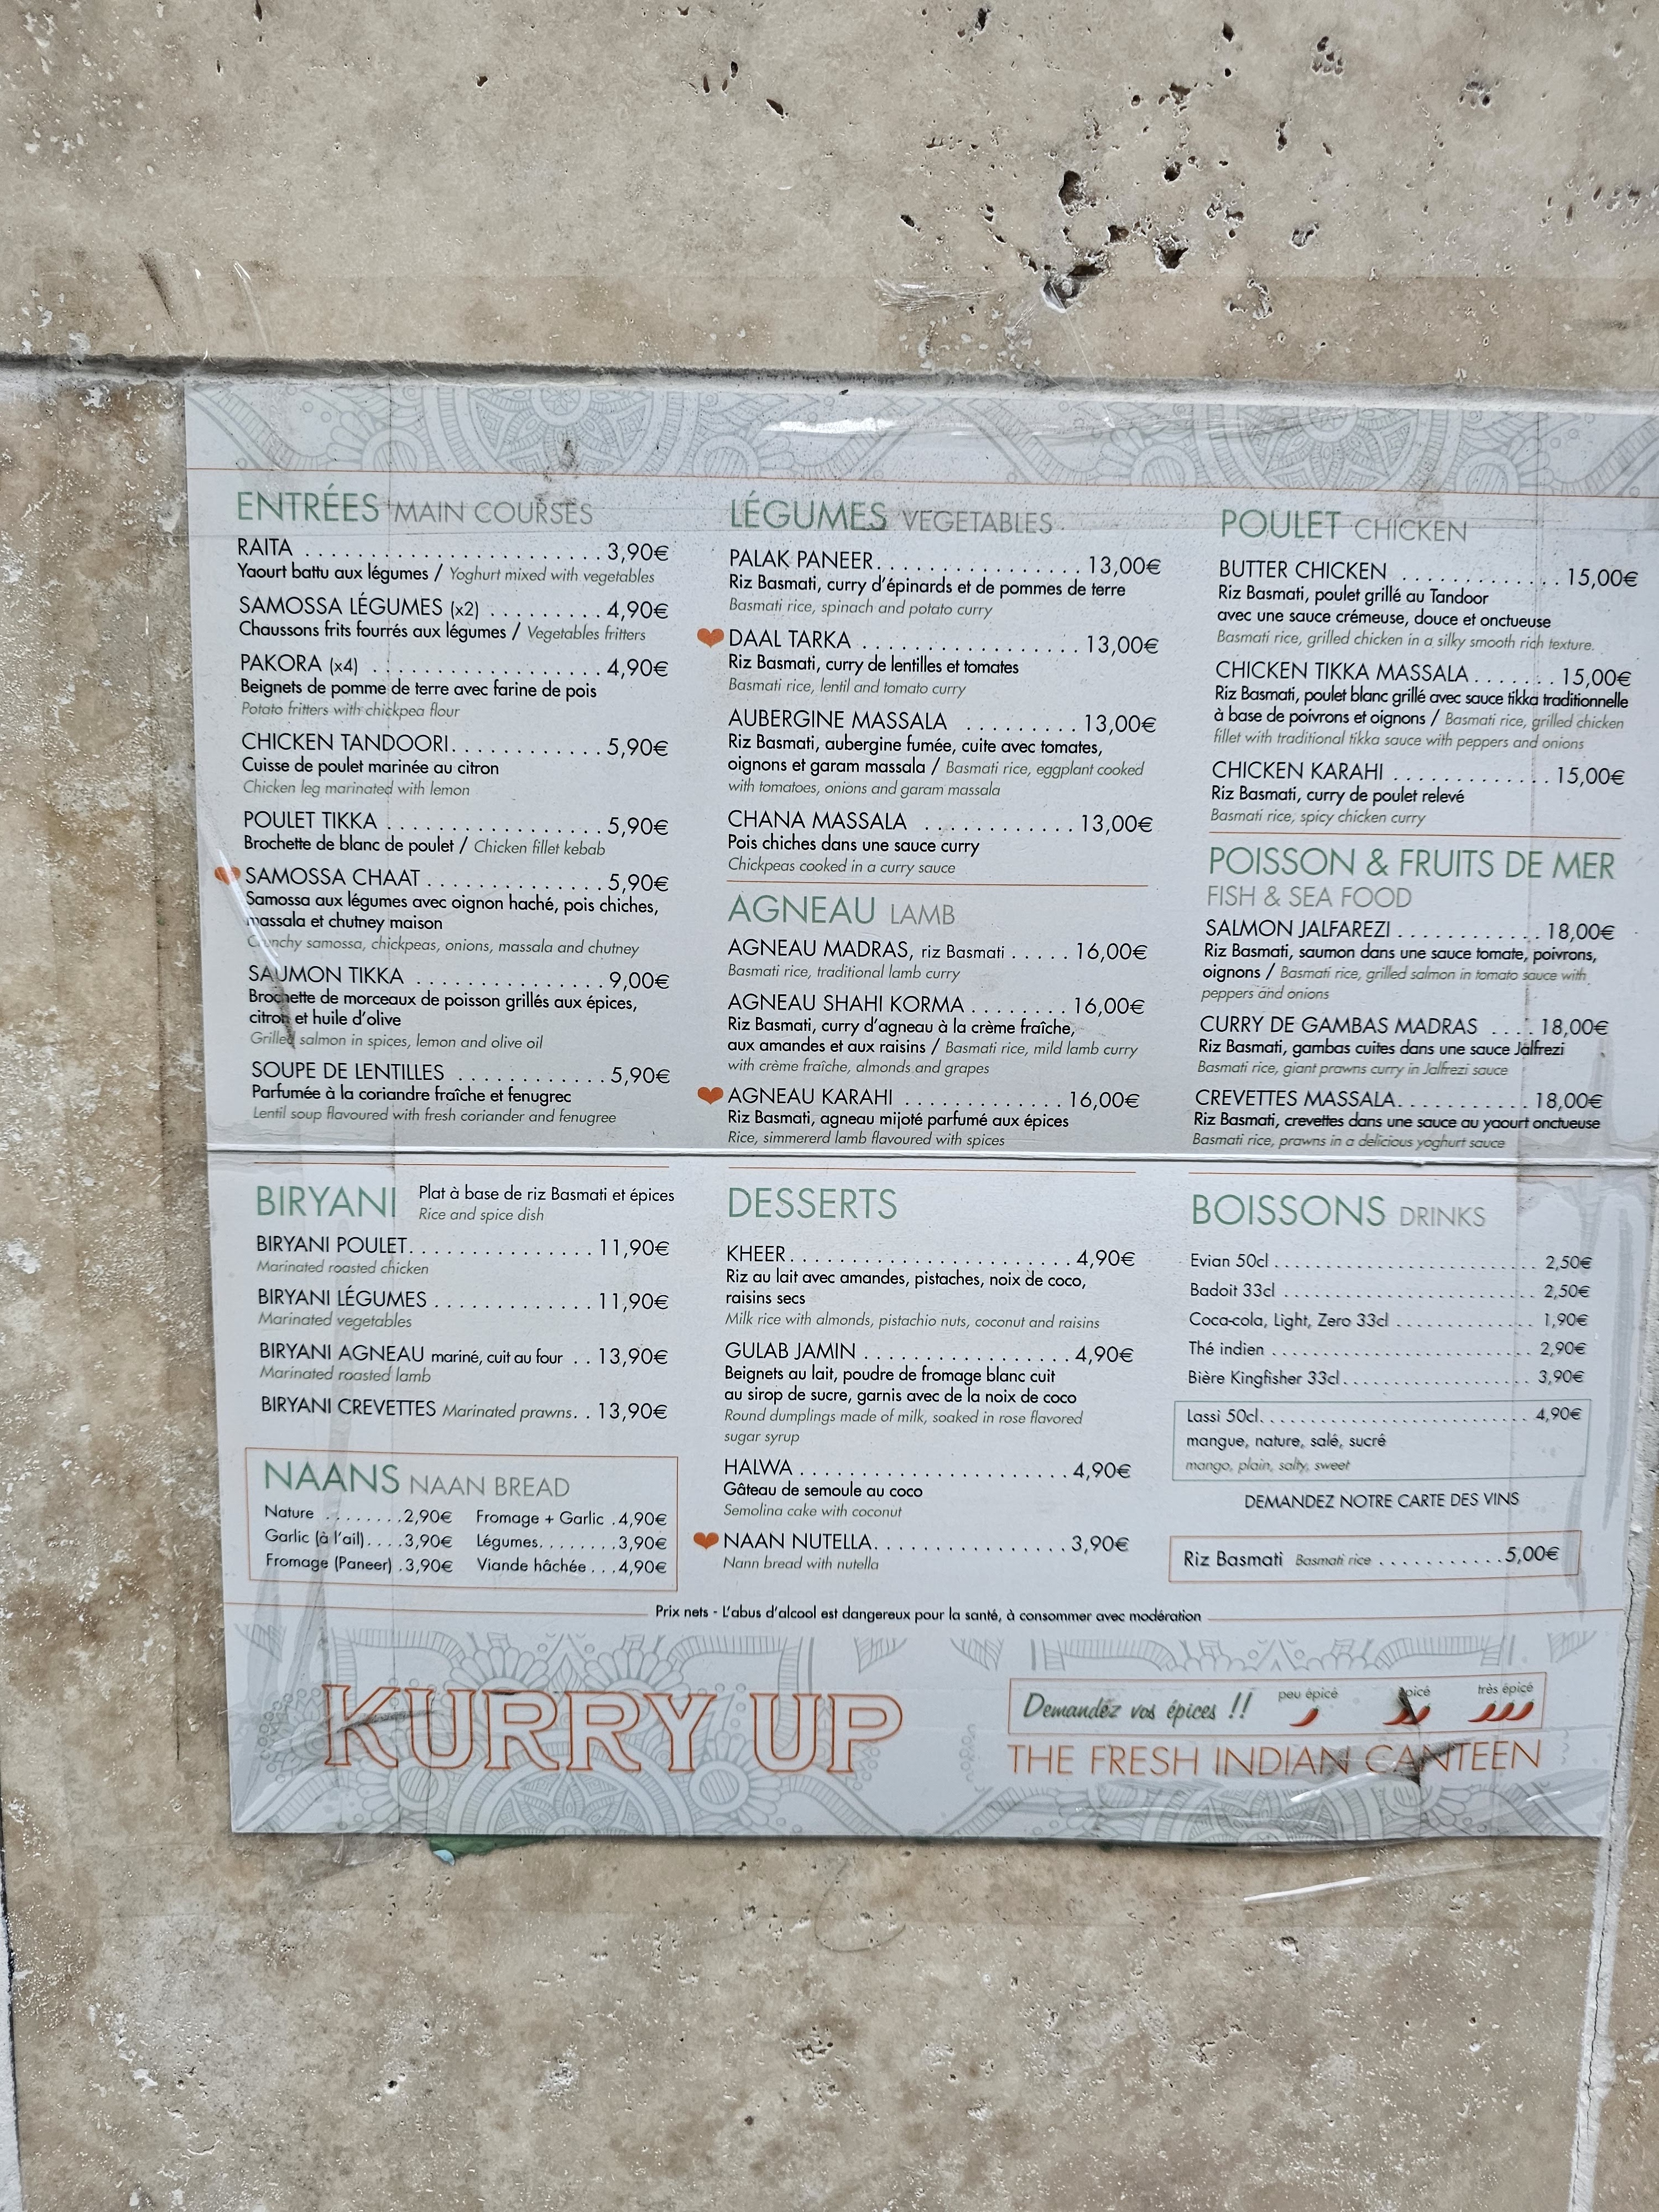 ENTRÉES MAIN COURSES
RAITA . . . . . . . . . . . . . . . . . . . . . . . . 3,90€
Yaourt battu aux légumes / Yoghurt mixed with vegetables
SAMOSSA LÉGUMES (x2) . . . . . . . . . 4,90€
Chaussons frits fourrés aux légumes / Vegetables fritters
PAKORA (x4) . . . . . . . . . . . . . . . . . . . 4,90€
Beignets de pomme de terre avec farine de pois
Potato fritters with chickpea flour
CHICKEN TANDOORI. . . . . . . . . . . . 5,90€
Cuisse de poulet marinée au citron
Chicken leg marinated with lemon
POULET TIKKA . . . . . . . . . . . . . . . . . . 5,90€
Brochette de blanc de poulet / Chicken fillet kebab
SAMOSSA CHAAT . . . . . . . . . . . . . . 5,90€
Samossa aux légumes avec oignon haché, pois chiches,
massala et chutney maison
Crunchy samossa, chickpeas, onions, massala and chutney
SAUMON TIKKA . . . . . . . . . . . . . . . 9,00€
Brochette de morceaux de poisson grillés aux épices,
citron et huile d'olive
Grilled salmon in spices, lemon and olive oil
SOUPE DE LENTILLES . . . . . . . . . . . . 5,90€
Parfumée à la coriandre fraîche et fenugrec
Lentil soup flavoured with fresh coriander and fenugree
LÉGUMES VEGETABLES
PALAK PANEER. . . . . . . . . . . . . . . . . 13,00€
Riz Basmati, curry d'épinards et de pommes de terre
Basmati rice, spinach and potato curry
DAAL TARKA . . . . . . . . . . . . . . . . . . 13,00€
Riz Basmati, curry de lentilles et tomates
Basmati rice, lentil and tomato curry
AUBERGINE MASSALA . . . . . . . . . 13,00€
Riz Basmati, aubergine fumée, cuite avec tomates,
oignons et garam massala / Basmati rice, eggplant cooked
with tomatoes, onions and garam massala
CHANA MASSALA . . . . . . . . . . . . 13,00€
Pois chiches dans une sauce curry
Chickpeas cooked in a curry sauce
AGNEAU LAMB
AGNEAU MADRAS, riz Basmati . . . . . 16,00€
Basmati rice, traditional lamb curry
AGNEAU SHAHI KORMA . . . . . . . . 16,00€
Riz Basmati, curry d'agneau à la crème fraîche,
aux amandes et aux raisins / Basmati rice, mild lamb curry
with crème fraîche, almonds and grapes
AGNEAU KARAHI . . . . . . . . . . . . . 16,00€
Riz Basmati, agneau mijoté parfumé aux épices
Rice, simmererd lamb flavoured with spices
POULET CHICKEN
BUTTER CHICKEN . . . . . . . . . . . . . 15,00€
Riz Basmati, poulet grillé au Tandoor
avec une sauce crémeuse, douce et onctueuse
Basmati rice, grilled chicken in a silky smooth rich texture.
CHICKEN TIKKA MASSALA . . . . . . . 15,00€
Riz Basmati, poulet blanc grillé avec sauce tikka traditionnelle
à base de poivrons et oignons / Basmati rice, grilled chicken
fillet with traditional tikka sauce with peppers and onions
CHICKEN KARAHI . . . . . . . . . . . . . 15,00€
Riz Basmati, curry de poulet relevé
Basmati rice, spicy chicken curry
POISSON & FRUITS DE MER
FISH & SEA FOOD
SALMON JALFAREZI . . . . . . . . . . . . 18,00€
Riz Basmati, saumon dans une sauce tomate, poivrons,
oignons / Basmati rice, grilled salmon in tomato sauce with
peppers and onions
CURRY DE GAMBAS MADRAS . . . . 18,00€
Riz Basmati, gambas cuites dans une sauce Jalfrezi
Basmati rice, giant prawns curry in Jalfrezi sauce
CREVETTES MASSALA. . . . . . . . . . . 18,00€
Riz Basmati, crevettes dans une sauce au yaourt onctueuse
Basmati rice, prawns in a delicious yoghurt sauce
BIRYANI Plat à base de riz Basmati et épices
Rice and spice dish
BIRYANI POULET. . . . . . . . . . . . . . . 11,90€
Marinated roasted chicken
BIRYANI LÉGUMES . . . . . . . . . . . . . 11,90€
Marinated vegetables
BIRYANI AGNEAU mariné, cuit au four . . 13,90€
Marinated roasted lamb
BIRYANI CREVETTES Marinated prawns. . 13,90€
NAANS NAAN BREAD
Nature . . . . . . . .2,90€ Fromage + Garlic .4,90€
Garlic (à l'ail). . . .3,90€ Légumes. . . . . . . .3,90€
Fromage (Paneer) .3,90€ Viande hâchée . . .4,90€
DESSERTS
KHEER. . . . . . . . . . . . . . . . . . . . . . . . 4,90€
Riz au lait avec amandes, pistaches, noix de coco,
raisins secs
Milk rice with almonds, pistachio nuts, coconut and raisins
GULAB JAMIN . . . . . . . . . . . . . . . . . . 4,90€
Beignets au lait, poudre de fromage blanc cuit
au sirop de sucre, garnis avec de la noix de coco
Round dumplings made of milk, soaked in rose flavored
sugar syrup
HALWA . . . . . . . . . . . . . . . . . . . . . . . 4,90€
Gâteau de semoule au coco
Semolina cake with coconut
NAAN NUTELLA. . . . . . . . . . . . . . . . . 3,90€
Nann bread with nutella
BOISSONS DRINKS
Evian 50cl . . . . . . . . . . . . . . . . . . . . . . . . . . . 2,50€
Badoit 33cl . . . . . . . . . . . . . . . . . . . . . . . . . . 2,50€
Coca-cola, Light, Zero 33cl . . . . . . . . . . . . . . 1,90€
Thé indien . . . . . . . . . . . . . . . . . . . . . . . . . . . 2,90€
Bière Kingfisher 33cl . . . . . . . . . . . . . . . . . . . 3,90€
Lassi 50cl. . . . . . . . . . . . . . . . . . . . . . . . . . . . 4,90€
mangue, nature, salé, sucré
mango, plain, salty, sweet
DEMANDEZ NOTRE CARTE DES VINS
Riz Basmati Basmati rice . . . . . . . . . . . .5,00€
Prix nets - L'abus d'alcool est dangereux pour la santé, à consommer avec modération
KURRY UP
Demandez vos épices !! peu épicé épicé très épicé
THE FRESH INDIAN CANTEEN